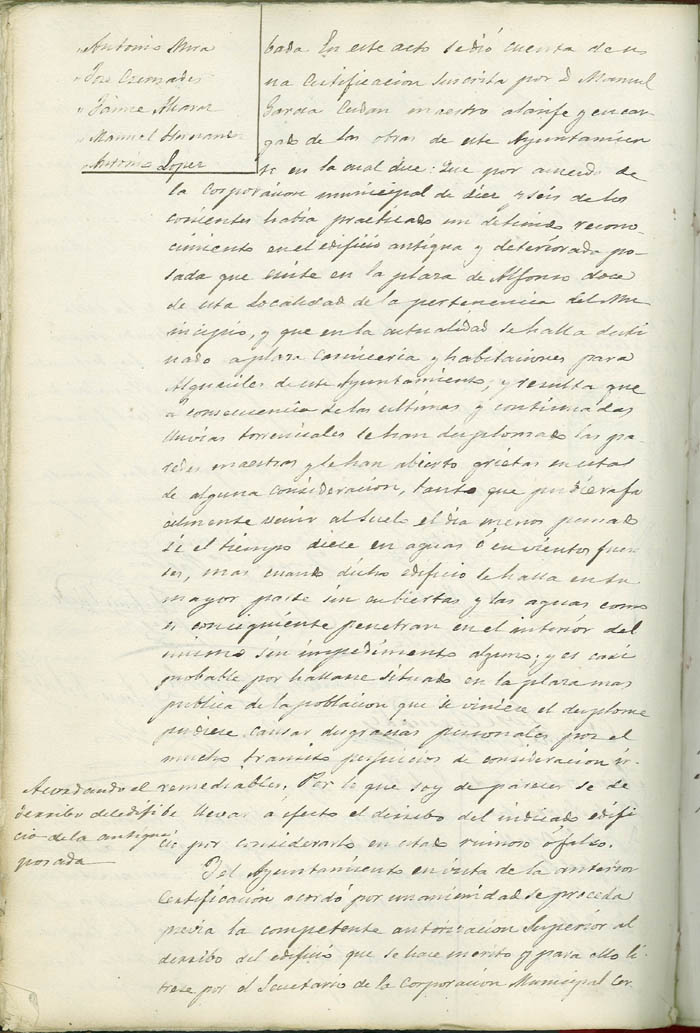 Antonio Mira
José Cremades
Jaime Alvarez
Manuel Hernandez
Antonio Lopez
bada En este acto se dió cuenta de u
na Certificacion suscrita por D Manuel
Garcia maestro alarife y encar
gado de las obras de este Ayuntamien
to en la cual dice: Que por acuerdo de
la Corporacion municipal de diez y seis de los
corrientes habia practicado un detenido recono-
cimiento en el edificio antigua y deteriorada po-
sada que existe en la plaza de Alfonso doce
de esta Localidad de la pertenencia del Mu
nicipio, y que en la actualidad se halla desti
nado a plaza carniceria y habitaciones para
Alguaciles de este Ayuntamiento, y resulta que
a consecuencia de las ultimas y continuadas
lluvias torrenciales se han desplomado las pa-
redes maestras y le han abierto grietas
de alguna consideracion, tanto que pudiera fa
cilmente venir al suelo el dia menos pensado
si el tiempo diese en aguas ó en vientos fuer
tes, mas cuando dicho edificio se halla en su
mayor parte sin cubiertas y las aguas como
es consiguiente penetran en el interior del
mismo sin impedimento alguno; y es casi
probable por hallarse situado en la plaza mas
publica de la poblacion que si viniere el desplome
pudiese causar desgracias personales por el
mucho transito perjuicios de consideracion ir-
remediables. Por lo que soy de parecer se de
be llevar a efecto el derribo del indicado edifi
cio por considerarlo en estado ruinoso ó falso.
Acordando el
derribo del edifi
cio de la antigua
posada
Y el Ayuntamiento en vista de la anterior
Certificacion acordó por unanimidad se proceda
previa la competente autorizacion Superior al
derribo del edificio que se hace merito y para ello li-
brese por el Secretario de la Corporacion Municipal Cer-